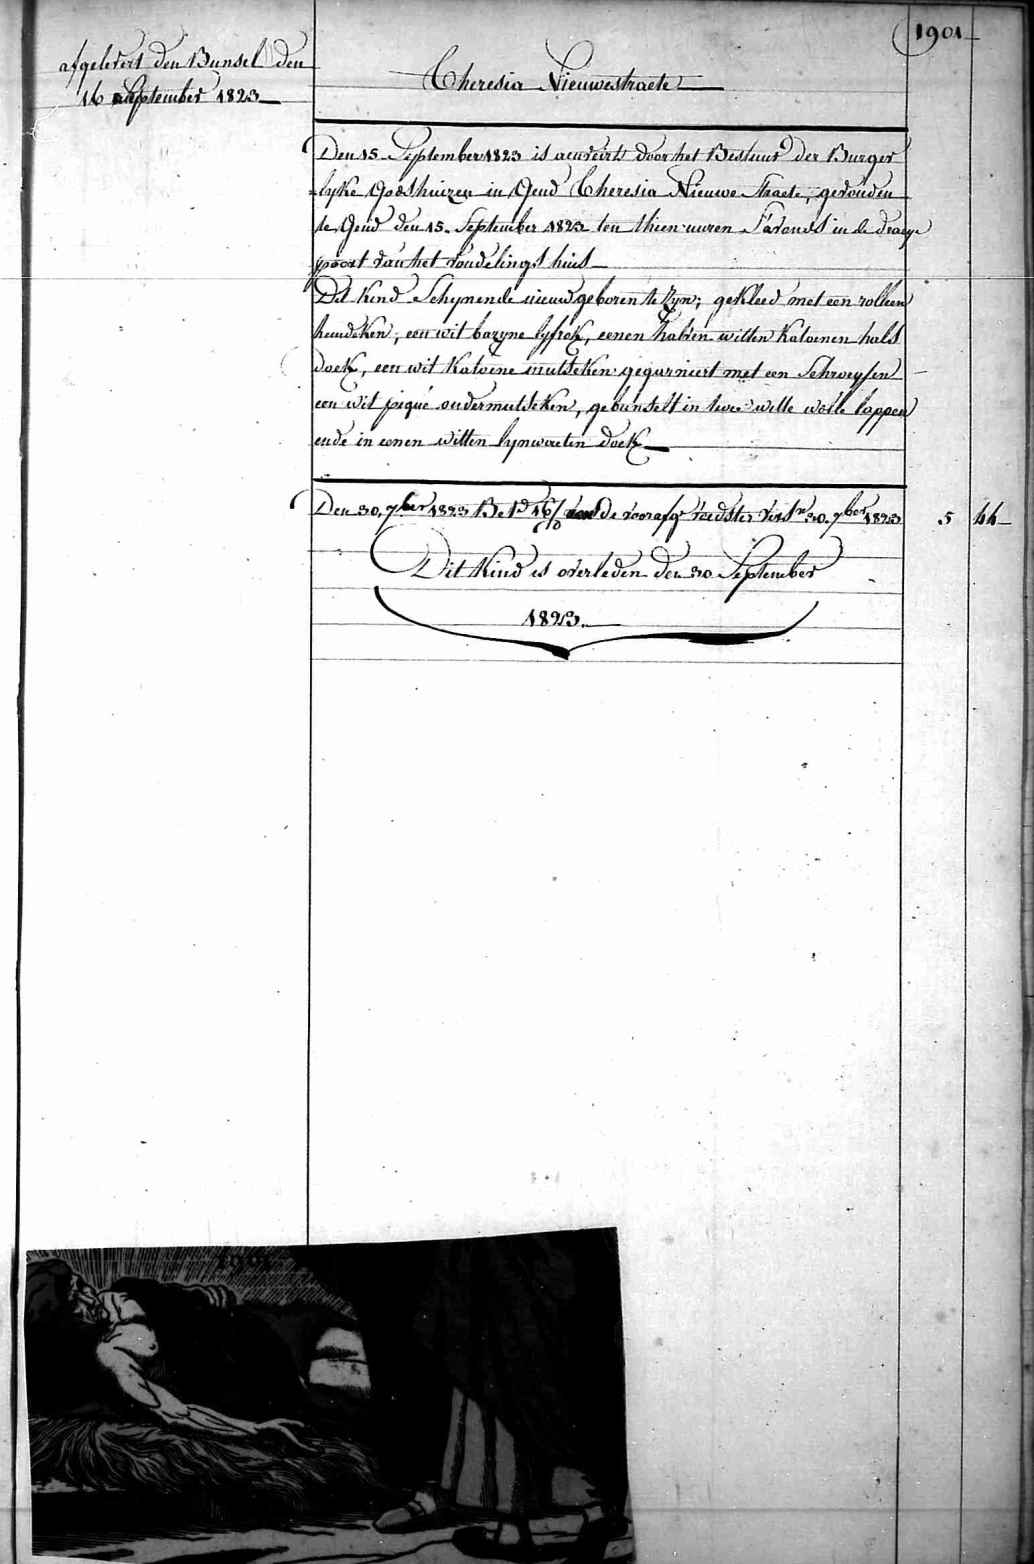 1901
afgelevert den Bunsel den
16 September 1823
Theresia Nieuwestraete
Den 15 September 1823 is aenveirt door het Bestuur der Burger
lyke Godshuizen in Gend Theresia Nieuwe Straete, gevonden
te Gend den 15 September 1823 ten thien uuren S'avonds in de draeye
poort van het vondelings huis
Dit Kind Schynende nieuw geboren te Zyn; gekleed met een
hemdeken, een wit bazyne lyfrok, eenen halven witten Katoenen hals
doek, een wit Katoene mutseken gegarniert met een
een wit piqué ondermutseken, gebunselt in twee witte wolle lappen
ende in eenen witten lynwaeten doek
Den 30 7ber 1823 de voorafge voedster 30 7ber 1823 5 44
Dit Kind is overleden den 30 September
1823